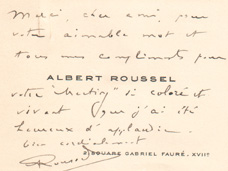 Merci, cher ami, pour
votre aimable mot et
tous mes compliments pour
ALBERT ROUSSEL
votre si coloré et
vivant que j'ai été
heureux d'applaudir.
bien cordialement
SQUARE GABRIEL FAURÉ. XVIIᵉ
Roussel